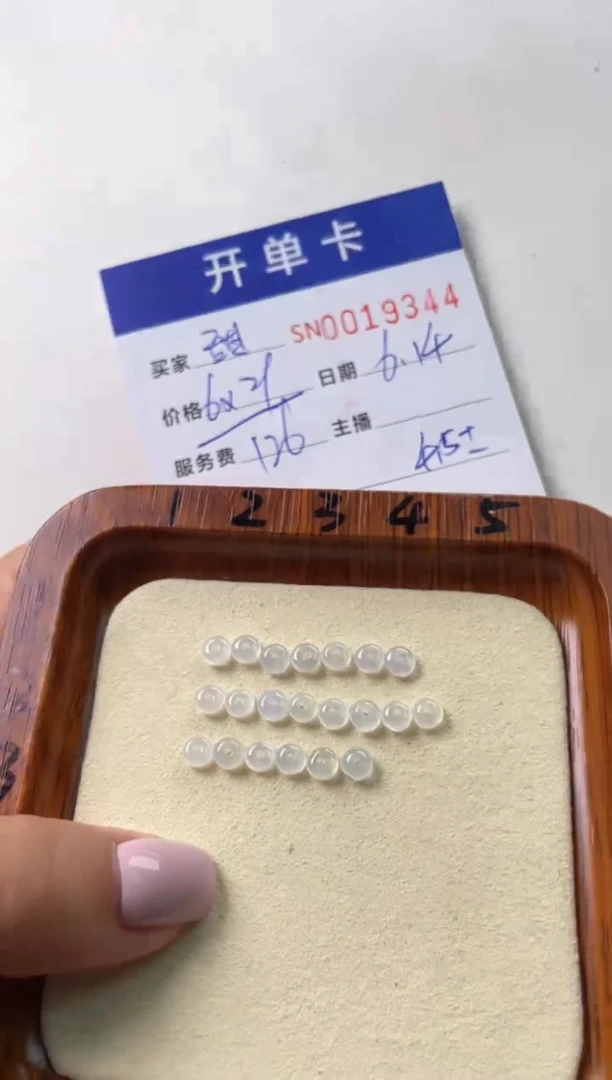 开单卡
SN0019344
买家 甜甜
价格 6x21 日期 6.14
服务费 126 主播
4.5±
1 2 3 4 5